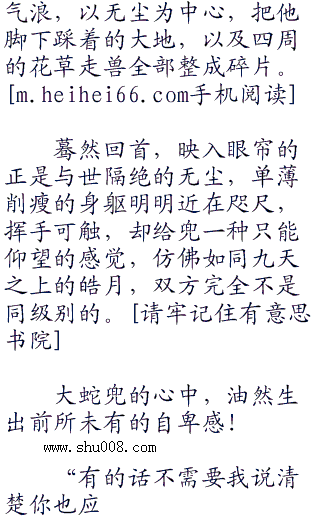 气浪，以无尘为中心，把他
脚下踩着的大地，以及四周
的花草走兽全部整成碎片。
[m.heihei66.com手机阅读]
蓦然回首，映入眼帘的
正是与世隔绝的无尘，单薄
削瘦的身躯明明近在咫尺，
挥手可触，却给兜一种只能
仰望的感觉，仿佛如同九天
之上的皓月，双方完全不是
同级别的。[请牢记住有意思
书院]
大蛇兜的心中，油然生
出前所未有的自卑感！
www.shu008.com
“有的话不需要我说清
楚你也应